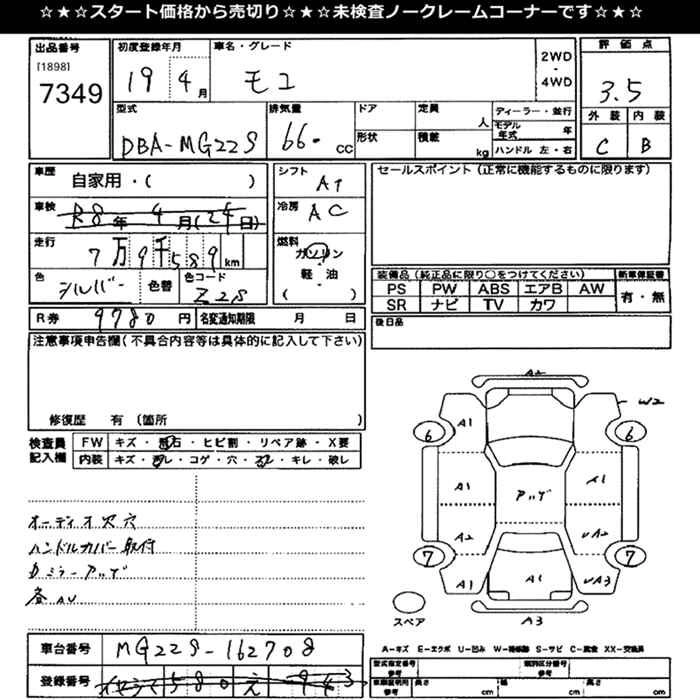 ☆★☆スタート価格から売切り☆★☆未検査ノークレームコーナーです☆★☆
出品番号
[1898]
7349
初度登録年月
19 4月
車名・グレード
モコ
2WD
・
4WD
評価点
3.5
外装 内装
C B
型式
DBA-MG22S
排気量
66・cc
ドア
形状
定員
人
積載
kg
ディーラー・並行
モデル年式 年
ハンドル 左・右
車歴
自家用・( )
車検
R8年4月(24日)
走行
7万9千589km
色
シルバー
色替
色コード
Z2S
シフト
AT
冷房
AC
燃料
ガソリン
・
軽・油
( )
セールスポイント(正常に機能するものに限ります)
装備品(純正品に限り○をつけてください)
PS PW ABS エアB AW
SR ナビ TV カワ
新車保証書
有・無
後日品
R券 9780円
名変通知期限 月 日
注意事項申告欄(不具合内容等は具体的に記入して下さい)
修復歴 有(箇所 )
検査員
記入欄
FW キズ・飛石・ヒビ割・リペア跡・X要
内装 キズ・汚レ・コゲ・穴・スレ・キレ・破レ
オーディオ欠穴
ハンドルカバー取付
ドミラーアッゲ
各AU
A2
W2
A1
6
6
A1
アッゲ
A1
A2
UA2
7
7
A1
A1
UA3
A3
スペア
A-キズ E-エクボ U-凹み W-補修跡 S-サビ C-腐食 XX-交換済
車台番号
MG22S-162708
登録番号
580 え 943
型式指定番号
類別区分番号
参考
車検証明用
参考
長さ cm
幅 cm
高さ cm